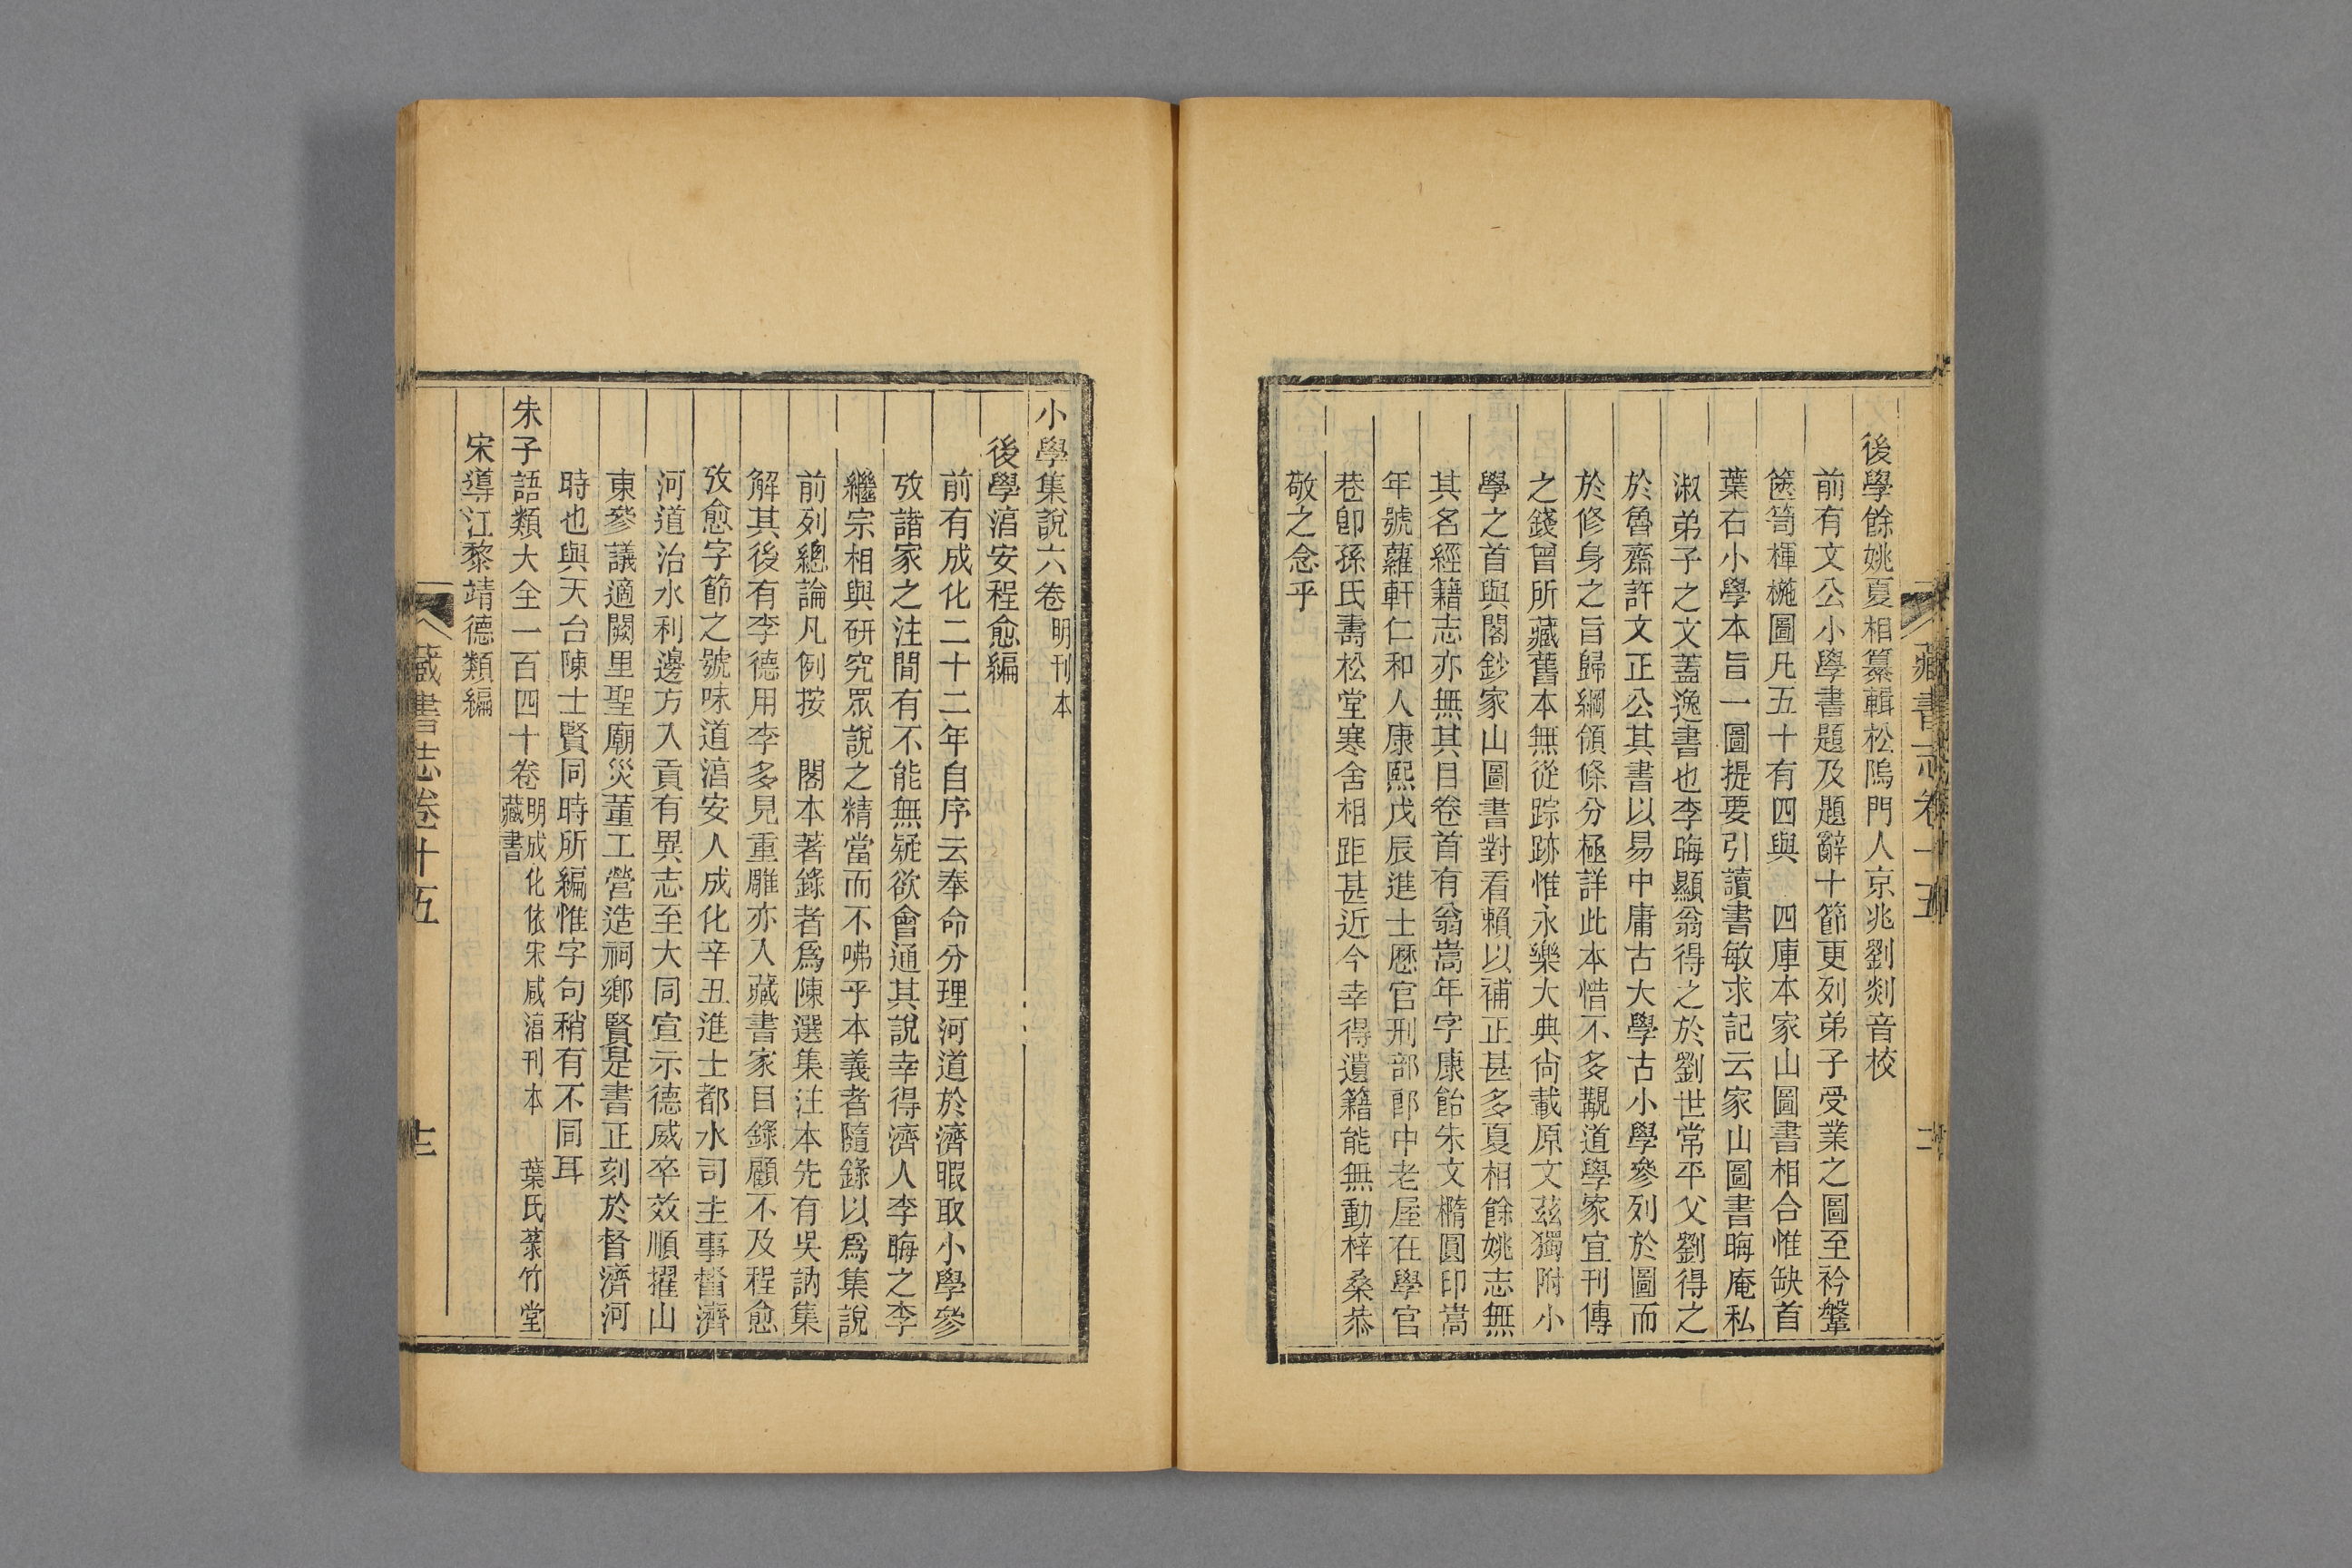 後學餘姚夏相纂輯松隖門人京兆劉剡音校
前有文公小學書題及題辭十節更列弟子受業之圖至衿鞶
篋笥楎椸圖凡五十有四與 四庫本家山圖書相合惟缺首
葉右小學本旨一圖提要引讀書敏求記云家山圖書晦庵私
淑弟子之文蓋逸書也李晦顯翁得之於劉世常平父劉得之
於魯齋許文正公其書以易中庸古大學古小學參列於圖而
於修身之旨歸綱領條分極詳此本惜不多覯道學家宜刊傳
之錢曾所藏舊本無從踪跡惟永樂大典尙載原文茲獨附小
學之首與閣鈔家山圖書對看賴以補正甚多夏相餘姚志無
其名經籍志亦無其目卷首有翁嵩年字康飴朱文橢圓印嵩
年號蘿軒仁和人康熙戊辰進士歷官刑部郎中老屋在學官
巷卽孫氏壽松堂寒舍相距甚近今幸得遺籍能無動梓桑恭
敬之念乎
藏書志卷十五
小學集說六卷 明刊本
後學湻安程愈編
前有成化二十二年自序云奉命分理河道於濟暇取小學參
攷諸家之注間有不能無疑欲會通其說幸得濟人李晦之李
繼宗相與硏究眾說之精當而不咈乎本義者隨錄以爲集說
前列總論凡例按 閣本著錄者爲陳選集注本先有吳訥集
解其後有李德用李多見重雕亦入藏書家目錄顧不及程愈
攷愈字節之號味道湻安人成化辛丑進士都水司主事督濟
河道治水利邊方入貢有異志至大同宣示德威卒效順擢山
東參議適闕里聖廟災董工營造祠鄉賢是書正刻於督濟河
時也與天台陳士賢同時所編惟字句稍有不同耳
朱子語類大全一百四十卷 明成化依宋咸湻刊本 葉氏菉竹堂
藏書
宋導江黎靖德類編
藏書志卷十五